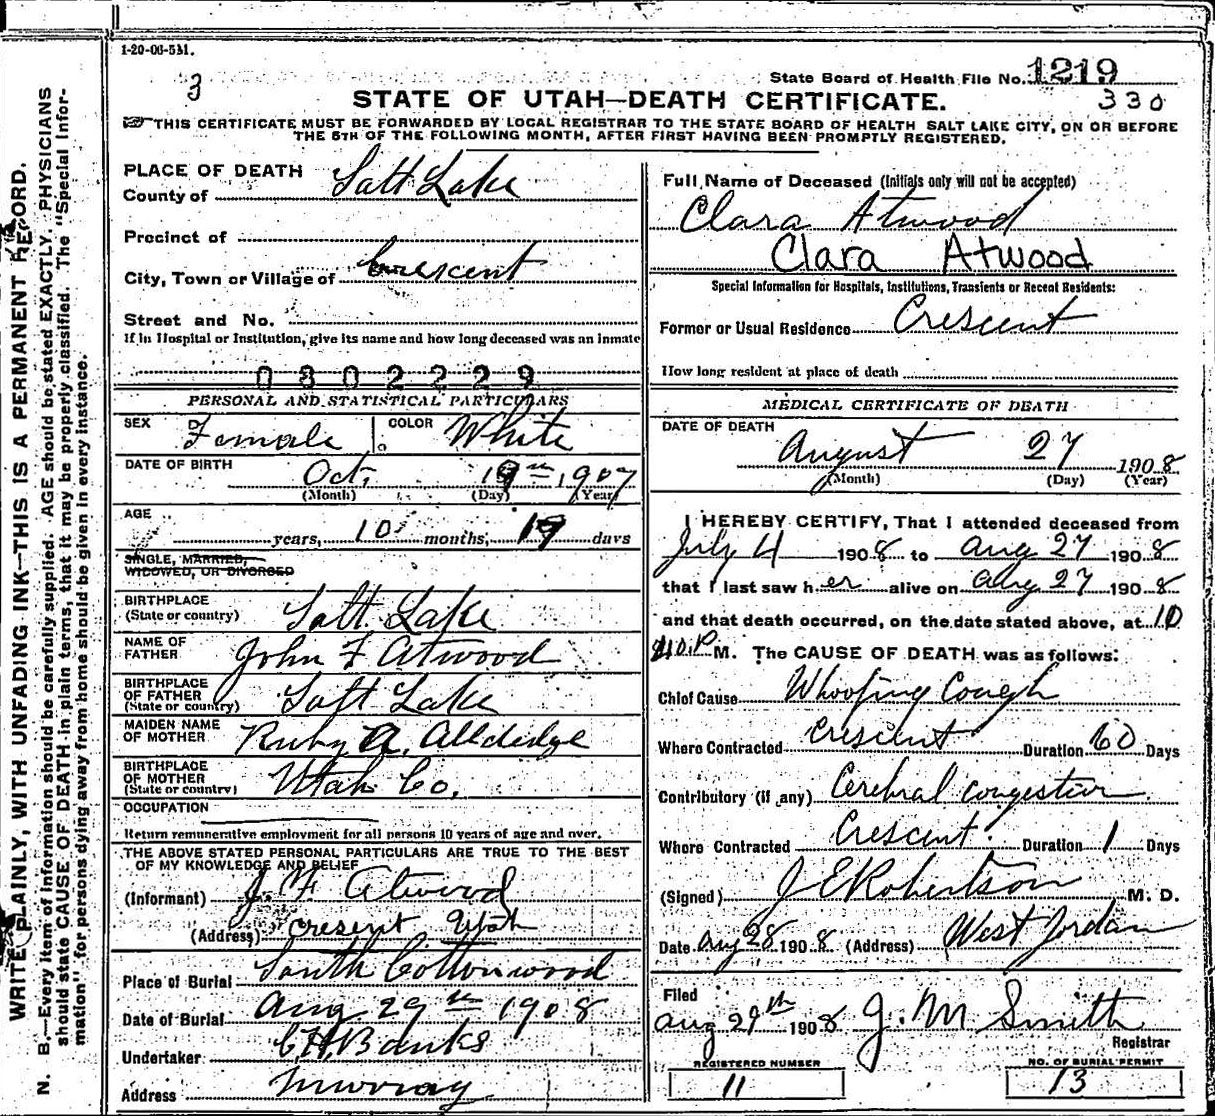 1-20-06-5M.
3
State Board of Health File No. 1219
330
STATE OF UTAH—DEATH CERTIFICATE.
THIS CERTIFICATE MUST BE FORWARDED BY LOCAL REGISTRAR TO THE STATE BOARD OF HEALTH SALT LAKE CITY, ON OR BEFORE
THE 5TH OF THE FOLLOWING MONTH, AFTER FIRST HAVING BEEN PROMPTLY REGISTERED.
WRITE PLAINLY, WITH UNFADING INK—THIS IS A PERMANENT RECORD.
N. B.—Every item of information should be carefully supplied. AGE should be stated EXACTLY. PHYSICIANS
should state CAUSE OF DEATH in plain terms, that it may be properly classified. The "Special Infor-
mation" for persons dying away from home should be given in every instance.
PLACE OF DEATH
County of Salt Lake
Precinct of
City, Town or Village of Crescent
Street and No.
If in Hospital or Institution, give its name and how long deceased was an inmate
0302229
PERSONAL AND STATISTICAL PARTICULARS
SEX Female COLOR White
DATE OF BIRTH Oct. 19th 1907
(Month) (Day) (Year)
AGE years, 10 months, 19 days
SINGLE, MARRIED,
WIDOWED, OR DIVORCED
BIRTHPLACE
(State or country) Salt Lake
NAME OF
FATHER John F Atwood
BIRTHPLACE
OF FATHER
(State or country) Salt Lake
MAIDEN NAME
OF MOTHER Ruby A. Alldedge
BIRTHPLACE
OF MOTHER
(State or country) Utah Co.
OCCUPATION
Return remunerative employment for all persons 10 years of age and over.
THE ABOVE STATED PERSONAL PARTICULARS ARE TRUE TO THE BEST
OF MY KNOWLEDGE AND BELIEF
(Informant) J. F. Atwood
(Address) Cresent Utah
Place of Burial South Cottonwood
Date of Burial Aug 29th 1908
Undertaker C.H. Banks
Address Murray
Full Name of Deceased (Initials only will not be accepted)
Clara Atwood
Clara Atwood
Special Information for Hospitals, Institutions, Transients or Recent Residents:
Former or Usual Residence Crescent
How long resident at place of death
MEDICAL CERTIFICATE OF DEATH
DATE OF DEATH
August 27 1908
(Month) (Day) (Year)
I HEREBY CERTIFY, That I attended deceased from
July 4 1908 to Aug 27 1908
that I last saw her alive on Aug 27 1908
and that death occurred, on the date stated above, at 10
P M. The CAUSE OF DEATH was as follows:
Chief Cause Whooping Cough
Where Contracted Crescent Duration 60 Days
Contributory (if any) Cerebral congestion
Where Contracted Crescent Duration 1 Days
(Signed) J E Robertson M. D.
Date Aug 28 1908 (Address) West Jordan
Filed
Aug 29th 1908 J. M Smith
Registrar
REGISTERED NUMBER
11
NO. OF BURIAL PERMIT
13